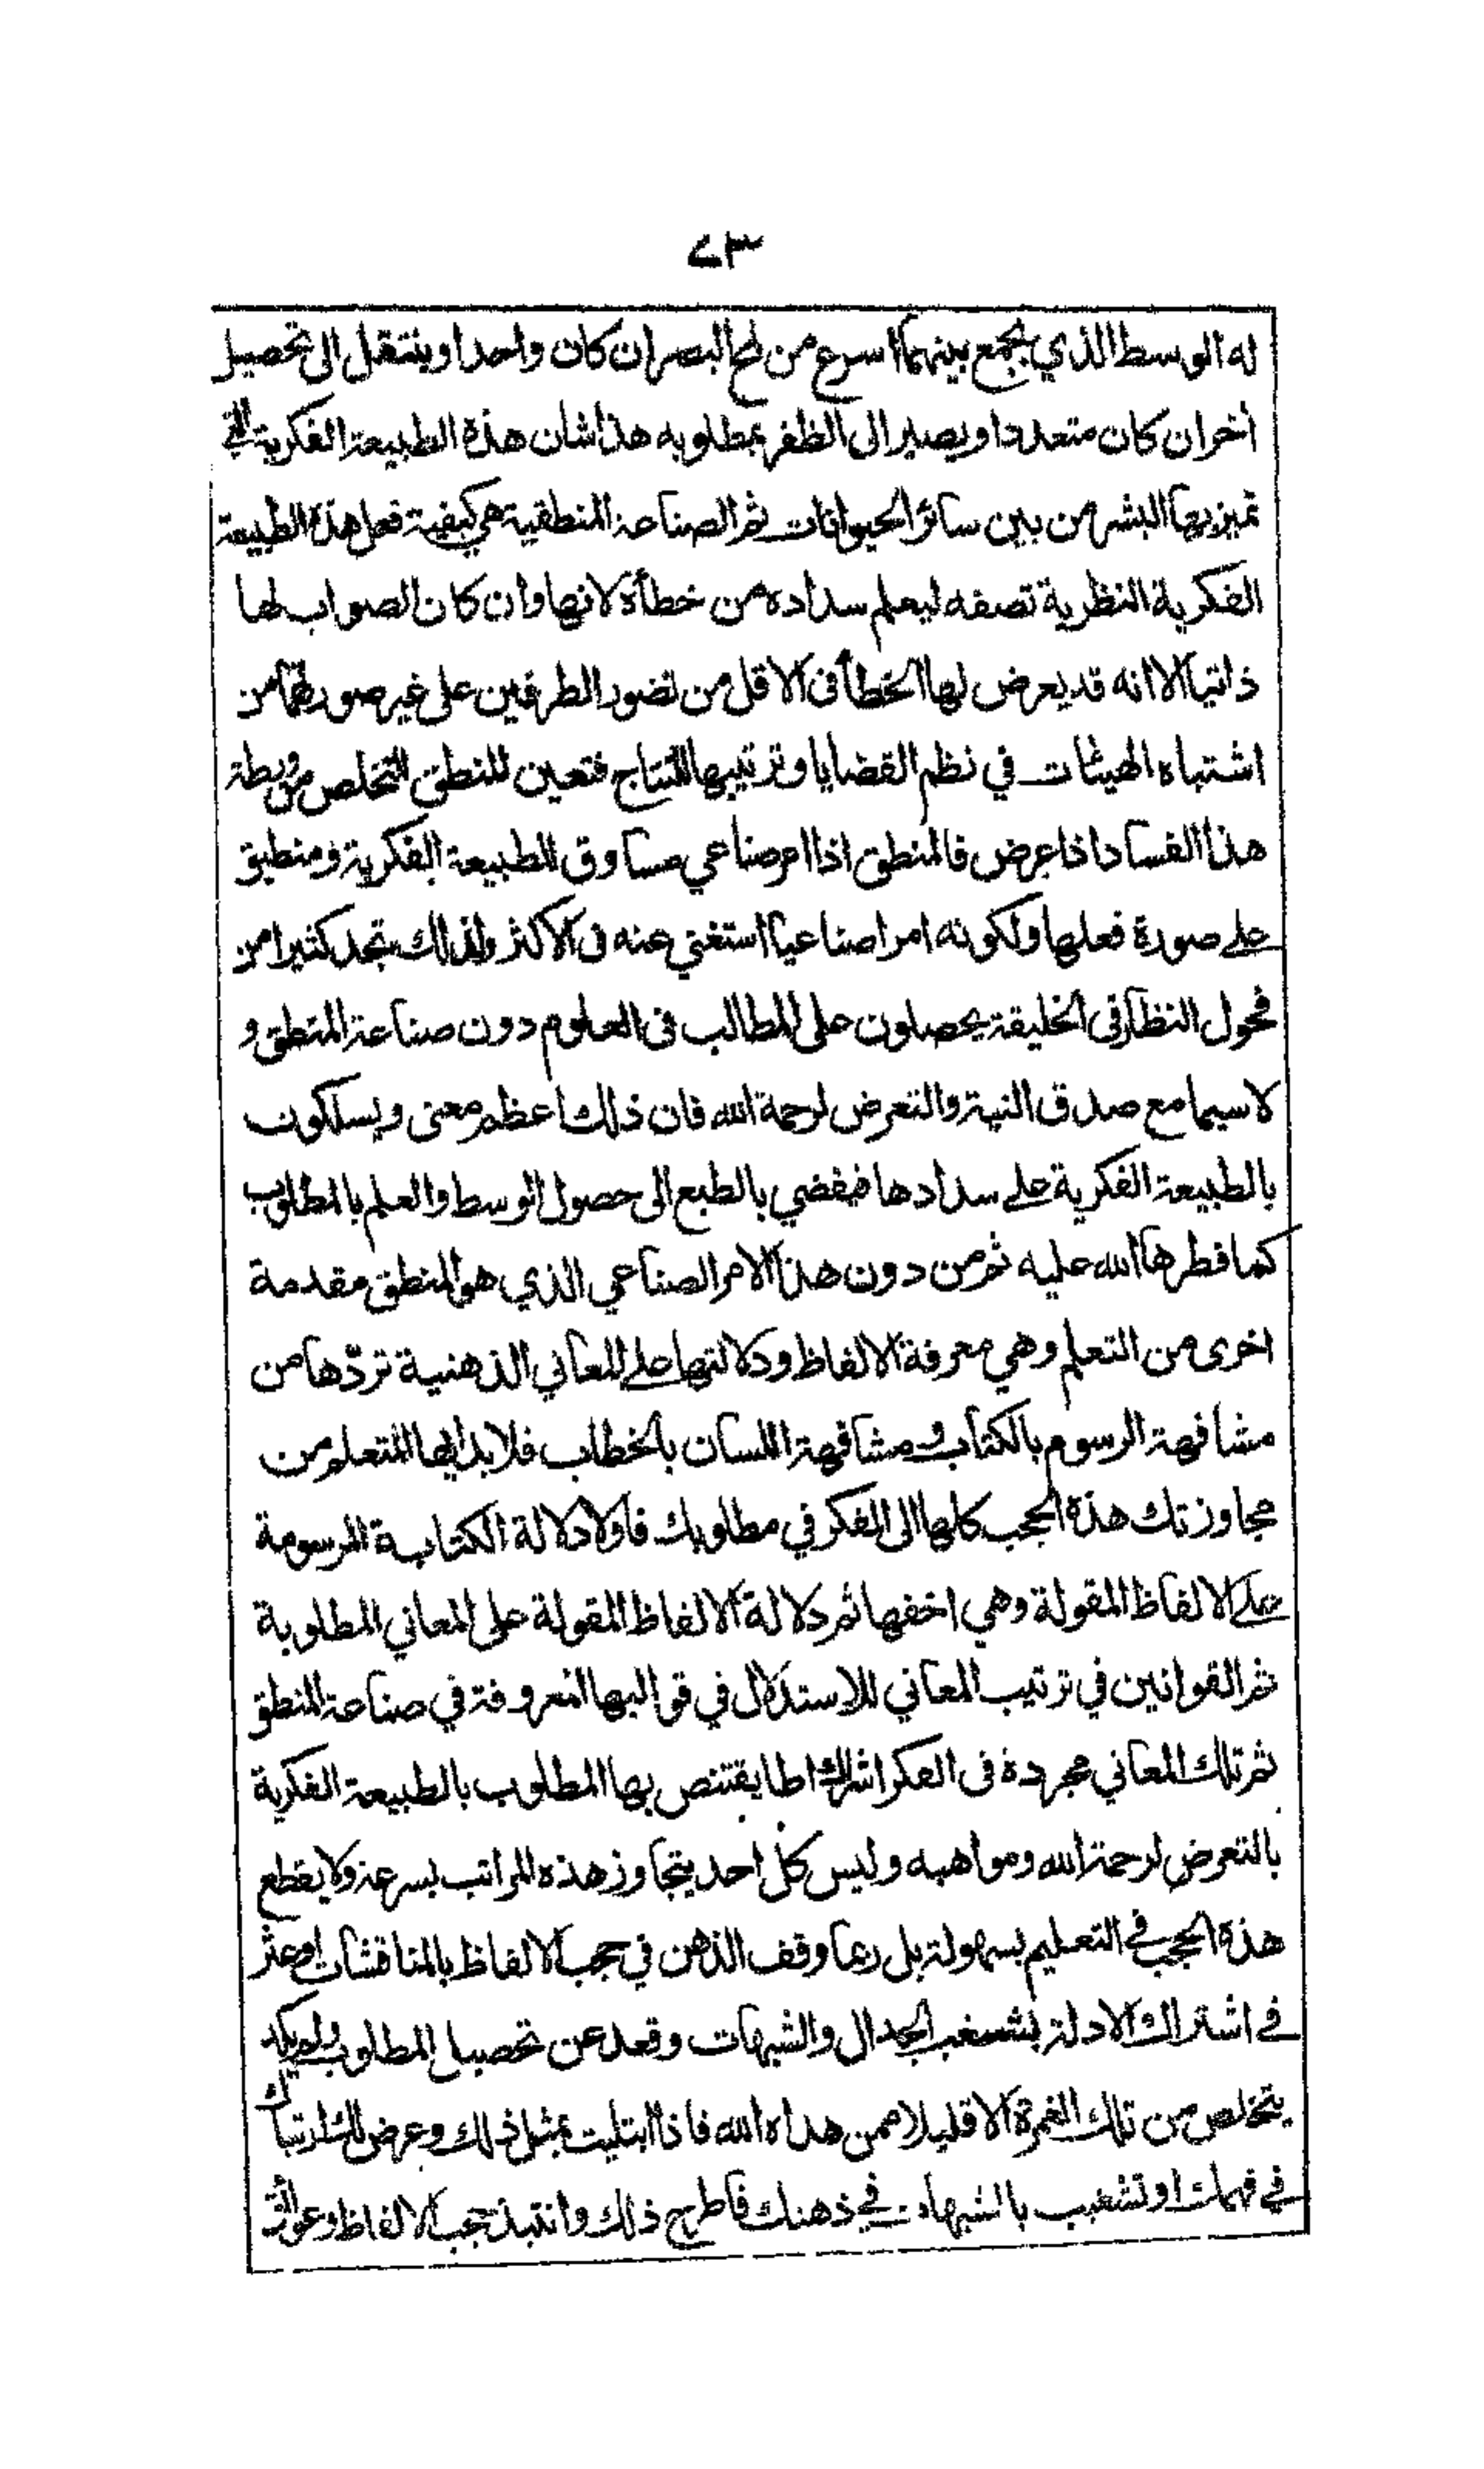 ٧٣
له الوسط الذي يجمع بينهما اسرع من لمح البصر ان كان واحدا وينتقل الى تحصيل
اخر ان كان متعددا ويصير الى الظفر بمطلوبه هذا شان هذة الطبيعة الفكرية التي
تميز بها البشر من بين سائر الحيوانات ثم الصناعة المنطقية هي كيفية فعل هذة الطبيعة
الفكرية النظرية تصفه ليعلم سداده من خطأة لانها وان كان الصواب لها
ذاتيا الا انه قد يعرض لها الخطأ فى الاقل من تصور الطرفين على غير صورتهما من
اشتباه الهيئات في نظم القضايا وترتيبها للنتاج فتعين المنطق للتخلص من ورطة
هذا الفساد اذا عرض فالمنطق اذا امر صناعي مساوق للطبيعة الفكرية ومنطبق
على صورة فعلها ولكونه امرا صناعيا استغني عنه فى الاكثر ولذالك تجد كثيرا من
فحول النظار فى الخليقة يحصلون على المطالب فى العلوم دون صناعة المنطق و
لا سيما مع صدق النية والتعرض لرحمة الله فان ذلك اعظم معنى ويسلكون
بالطبيعة الفكرية على سدادها فيفضي بالطبع الى حصول الوسط والعلم بالمطلوب
كما فطرها الله عليه ثم من دون هذا الامر الصناعي الذي هو المنطق مقدمة
اخرى من التعلم وهي معرفة الالفاظ ودلالتها على المعاني الذهنية تردّها من
مشافهة الرسوم بالكتاب ومشافهة اللسان بالخطاب فلا بد ايها المتعلم من
مجاوزتك هذة الحجب كلها الى الفكر في مطلوبك فاولا دلالة الكتابة المرسومة
على الالفاظ المقولة وهي اخفها ثم دلالة الالفاظ المقولة على المعاني المطلوبة
ثم القوانين في ترتيب المعاني للاستدلال في قوالبها المعروفة في صناعة المنطق
ثم تلك المعاني مجردة فى الفكر اشراكا يقتنص بها المطلوب بالطبيعة الفكرية
بالتعرض لرحمة الله ومواهبه وليس كل احد يتجاوز هذه المراتب بسرعة ولا يقطع
هذة الحجب في التعليم بسهولة بل ربما وقف الذهن في حجب الالفاظ بالمناقشات او عثر
في اشتراك الادلة بشغب الجدال والشبهات وقعد عن تحصيل المطلوب ولم يكد
يتخلص من تلك الغمرة الا قليلا ممن هداه الله فاذا ابتليت بمثل ذلك وعرض لك ارتباك
في فهمك او تشغيب بالشبهات في ذهنك فاطرح ذلك وانتبذ حجب الالفاظ وعوائق